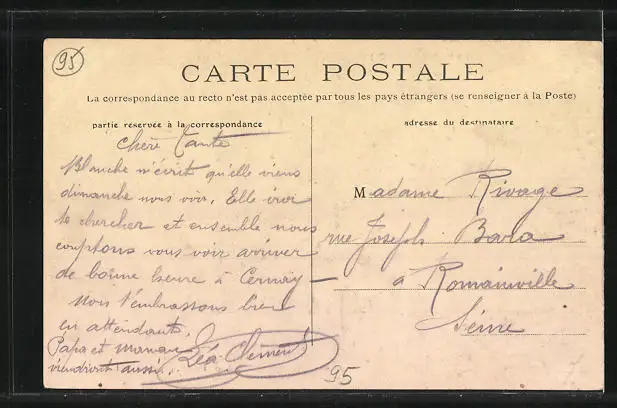 95
CARTE POSTALE
La correspondance au recto n'est pas acceptée par tous les pays étrangers (se renseigner à la Poste)
partie réservée à la correspondance
adresse du destinataire
Chère Tante
Blanche m'écrit qu'elle viens
dimanche nous voir. Elle iroi
te chercher et ensemble nous
comptons vous voir arriver
de bonne heure à Cernay
Nous t'embrassons bien
en attendant.
Papa et maman
viendront aussi.
Léa Clément
Madame Rivage
rue Joseph Bara
à Romainville
Seine
95